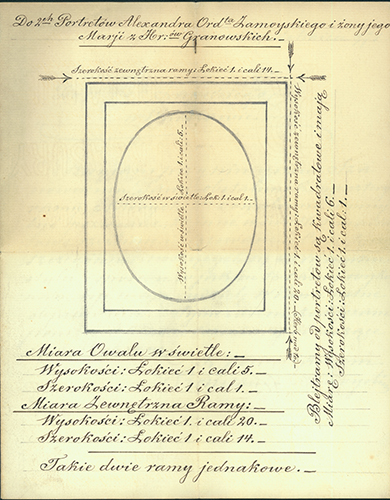 Do 2ch Portretów Alexandra Ord-ta Zamoyskiego i żony jego
Marji z Hr: ów Granowskich. _
Szerokość zewnętrzna ramy: Łokieć 1. i cali 14. _
Wysokość zewnętrzna ramy: Łokieć 1 i cali 20. _
Wysokość w świetle: Łokieć 1. i cali 5. _
Szerokość w świetle: Łok: 1. i cal 1. _
Blejtramy od portretów są kwadratowe i mają
Miarę: Wysokości: Łokieć 1. i cali 6. _
Szerokości: Łokieć 1. i cal. 1. _
Miara Owalu w świetle: _
Wysokości: Łokieć 1 i cali 5. _
Szerokości: Łokieć 1 i cal 1. _
Miara Zewnętrzna Ramy: _
Wysokości: Łokieć 1. i cali 20. _
Szerokości: Łokieć 1. i cali 14. _
Takie dwie ramy jednakowe. _